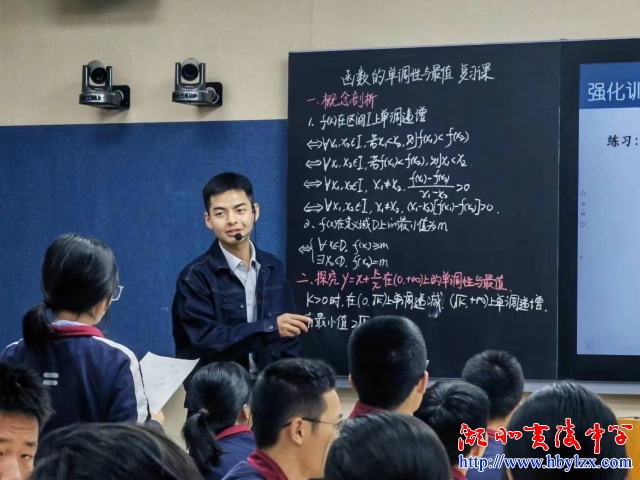 函数的单调性与最值 复习课
一、概念剖析
1. f(x)在区间I上单调递增
⇔∀x₁,x₂∈I,若x₁<x₂,则f(x₁)<f(x₂)
⇔∀x₁,x₂∈I,若f(x₁)<f(x₂),则x₁<x₂
⇔∀x₁,x₂∈I, x₁≠x₂, f(x₁)-f(x₂)/x₁-x₂>0
⇔∀x₁,x₂∈I, x₁≠x₂, (x₁-x₂)[f(x₁)-f(x₂)]>0.
2. f(x)在定义域D上的最小值为m
⇔{∀x∈D, f(x)≥m
∃x₀∈D, f(x₀)=m
二、探究y=x+k/x在(0,+∞)上的单调性与最值
k>0时,在(0,√k)上单调递减,(√k,+∞)上单调递增.
最小值2√k
强化训
练习:
湖北夷陵中学
http://www.hbylzx.com